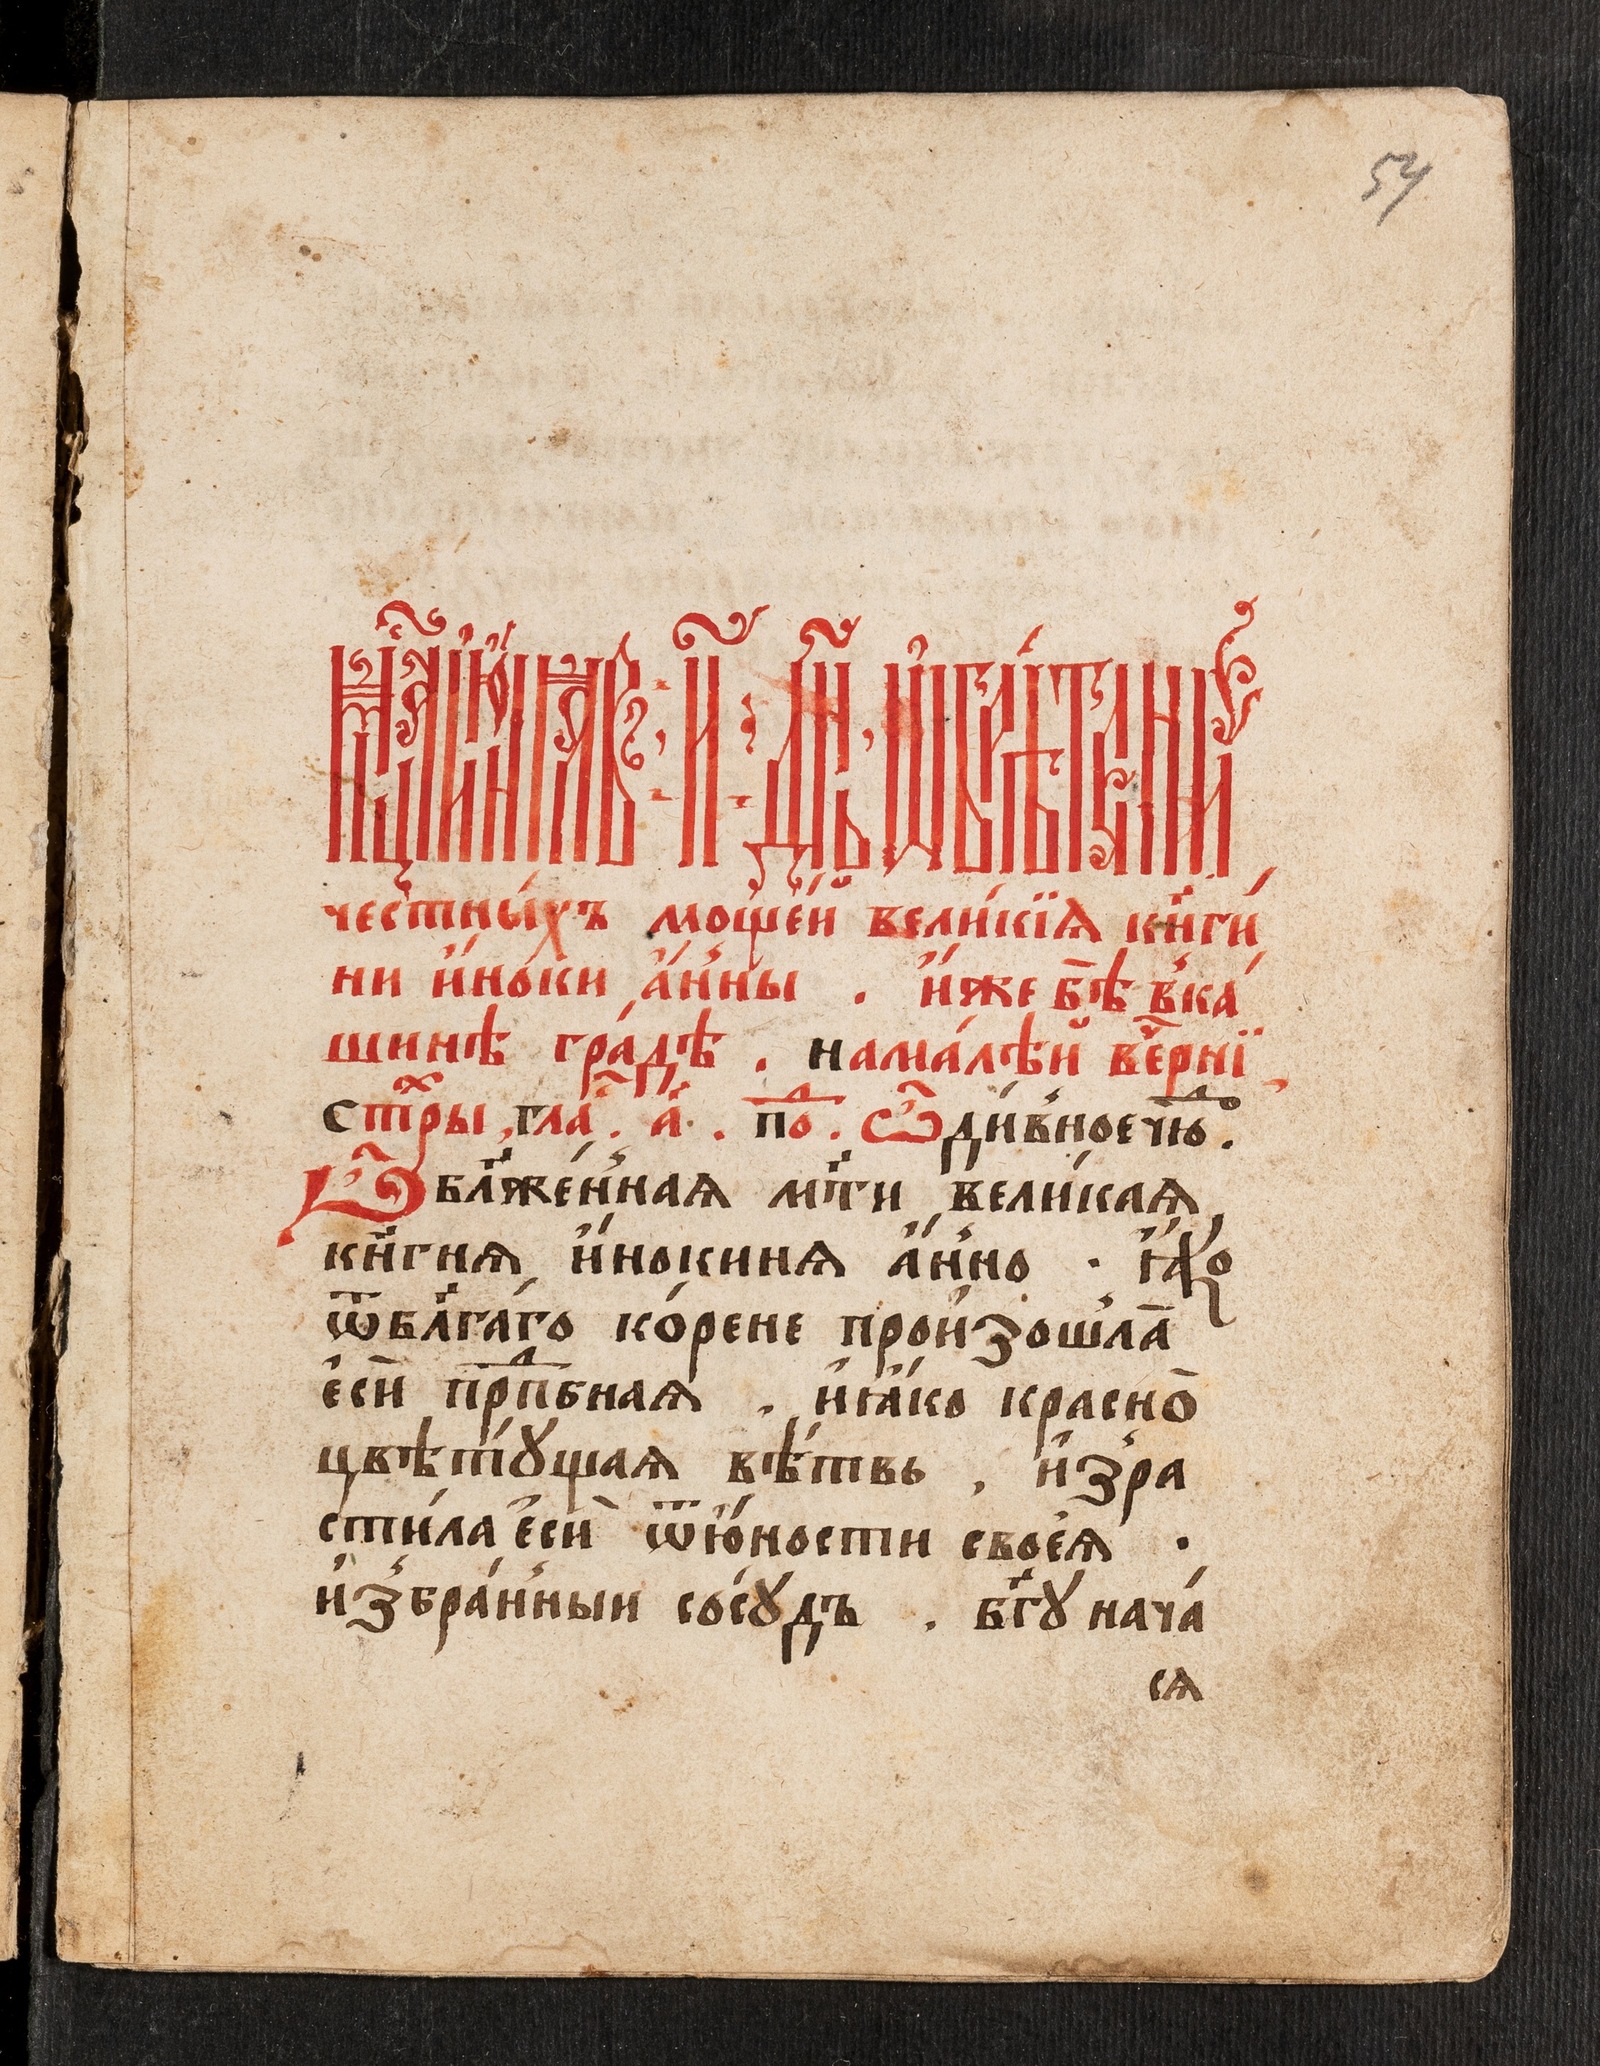 54
мц҃а їю́нѧ въ · к҃а · де́нь, ѡ҆брѣ́тенїе
честны́хъ моще́й вели́кїѧ кн҃ги́
ни и҆́ноки а҆́нны . и҆́же бѣ̀ вка́
шинѣ гра́дѣ . нама́лѣй вече́рнї
стх҃ры , гла́ . а҃ . по⁣ⷣ . Ѽди́вное чю́⁣ⷣо .
Ѽ бл҃же́ннаѧ мт҃и вели́каѧ
кн҃гнѧ и҆нокинѧ а҆́нно . ꙗ҆́кѡ
ѿбл҃га́го ко́рене произошла̀
є҆сѝ прпⷣбнаѧ . и҆ꙗ҆́ко красно̀
цвѣтꙋ́щаѧ вѣ́твь , и҆зра
сти́ла є҆сѝ ѿю҆́ности своеѧ̀ .
и҆збра́нныи сосꙋ́дъ . бг҃ꙋ нача́
сѧ